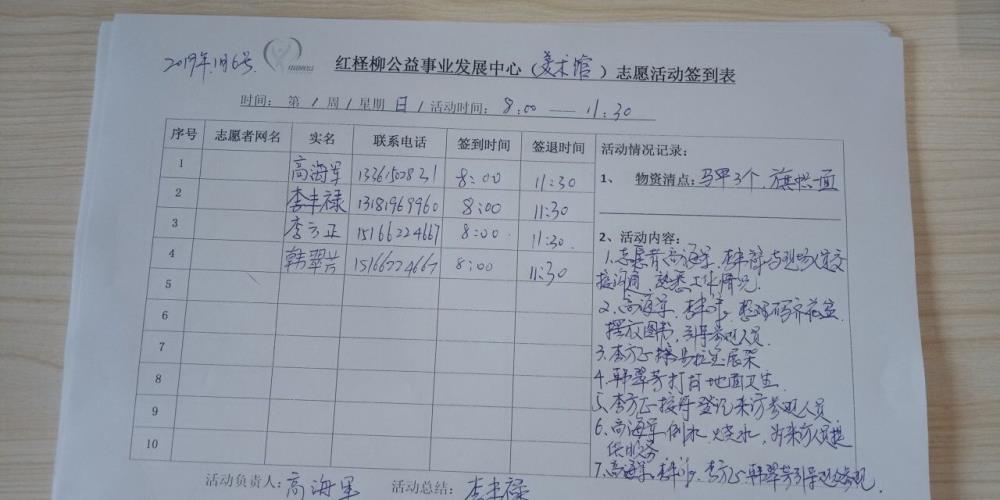 2019年1月6号
红柽柳公益事业发展中心（美术馆）志愿活动签到表
时间：第 1 周/星期 日/活动时间：8:00 — 11:30
序号 志愿者网名 实名 联系电话 签到时间 签退时间 活动情况记录：
1 高海军 8:00 11:30
1、 物资清点：马甲3个，旗帜一面
2 李丰禄 13181969960 8:00 11:30
3 李方正 15166224667 8:00 11:30
2、活动内容：
4 韩翠芳 15166224667 8:00 11:30
1.志愿者高海军、李丰禄与现场人员交
接沟通，熟悉工作情况
5
2、高海军、李丰禄，整理码齐
摆放图书，引导参观人员
6
3、李方正 展架
7
4、韩翠芳打扫地面卫生
8
5、李方正接待登记来访参观人员
9
6、高海军倒水、烧水，为来访人员提
供服务
10
7、高海军、李丰禄、李方正、韩翠芳引导观众参观
活动负责人：高海军 活动总结：李丰禄